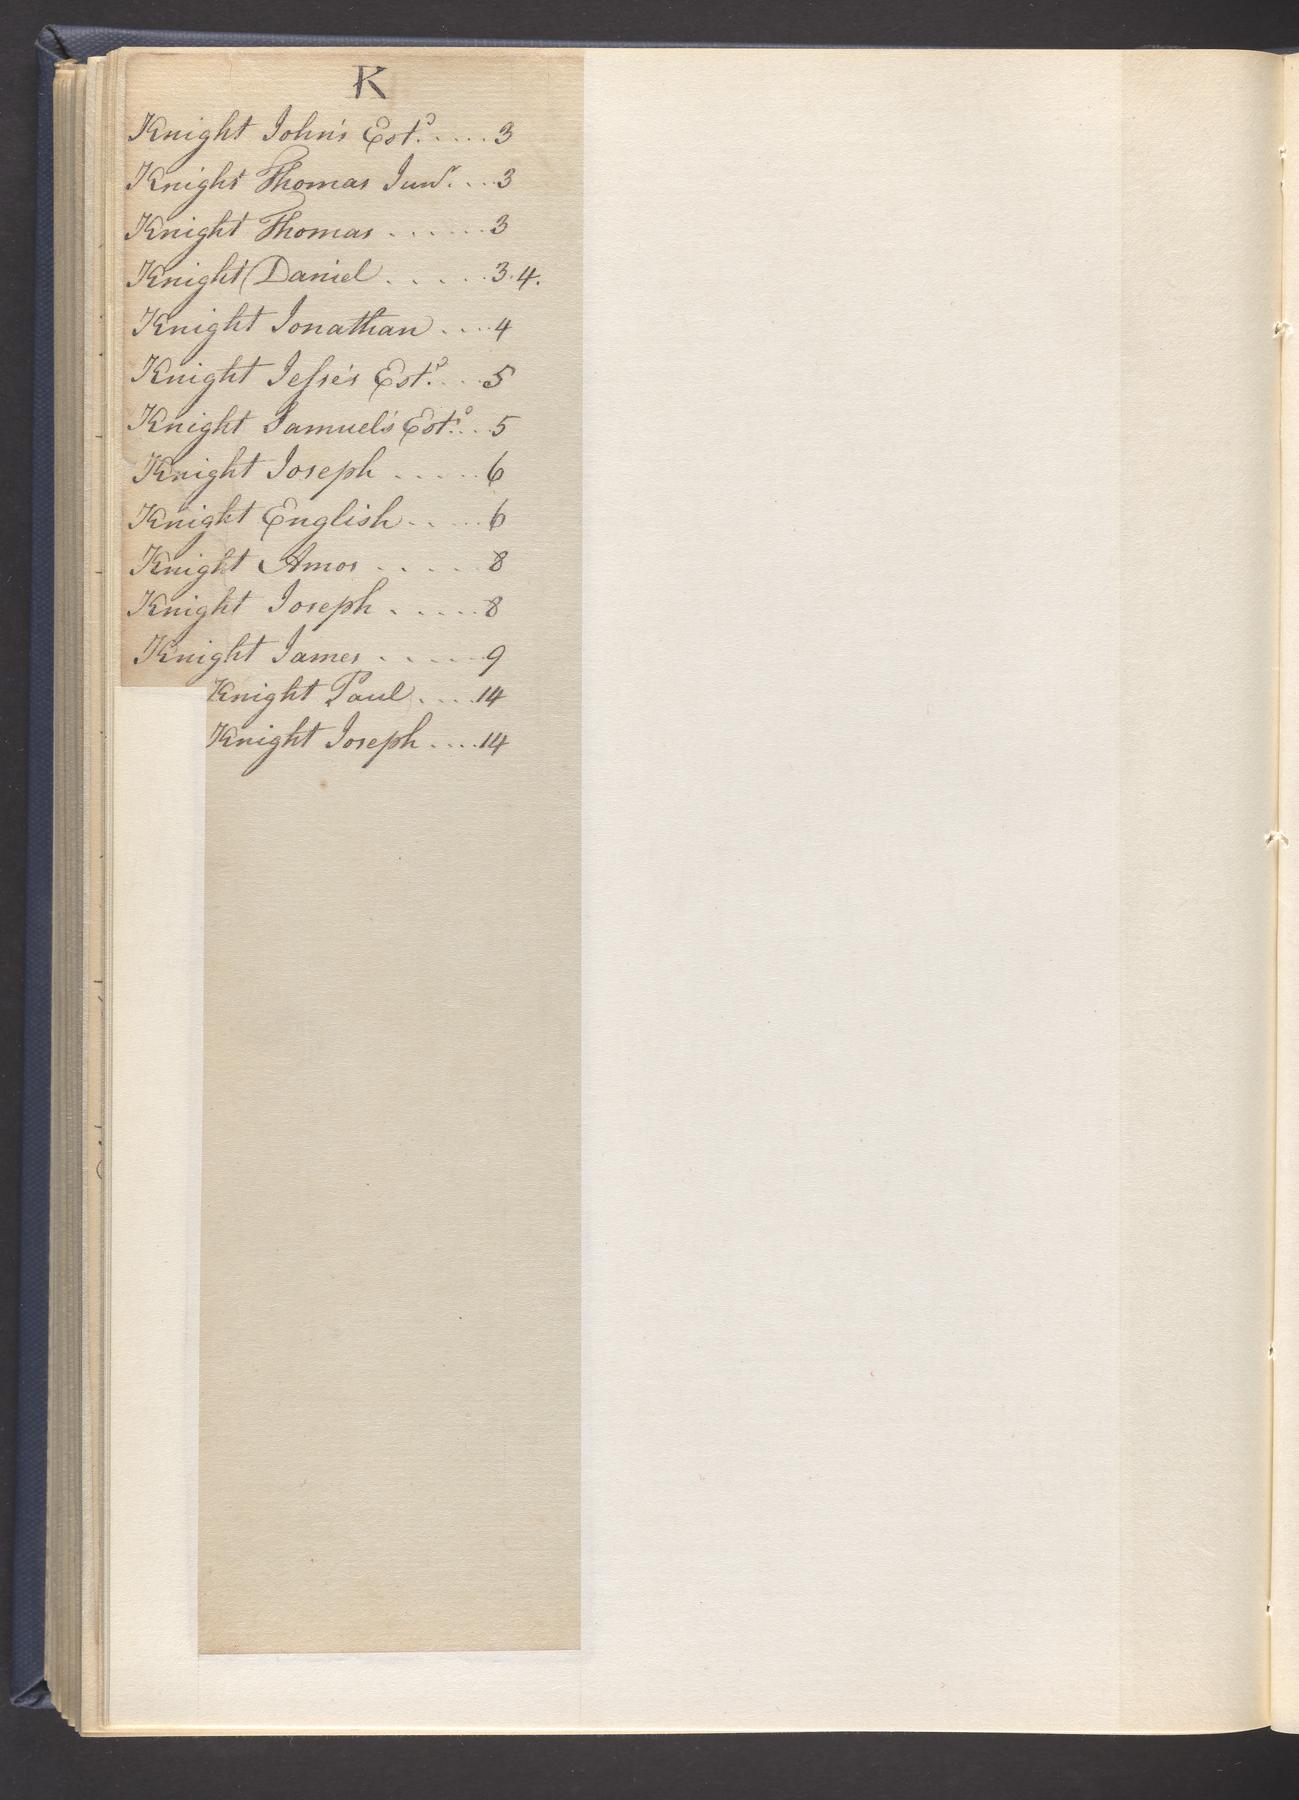 K
Knight John's Est.ᵉ .....3
Knight Thomas Junʳ. ...3
Knight Thomas ......3
Knight Daniel ......3.4.
Knight Jonathan ....4
Knight Jeſse's Est.ᵉ ....5
Knight Samuel's Est.ᵉ ...5
Knight Joseph ......6
Knight English ......6
Knight Amos ......8
Knight Joseph ......8
Knight James ......9
Knight Paul ....14
Knight Joseph ....14